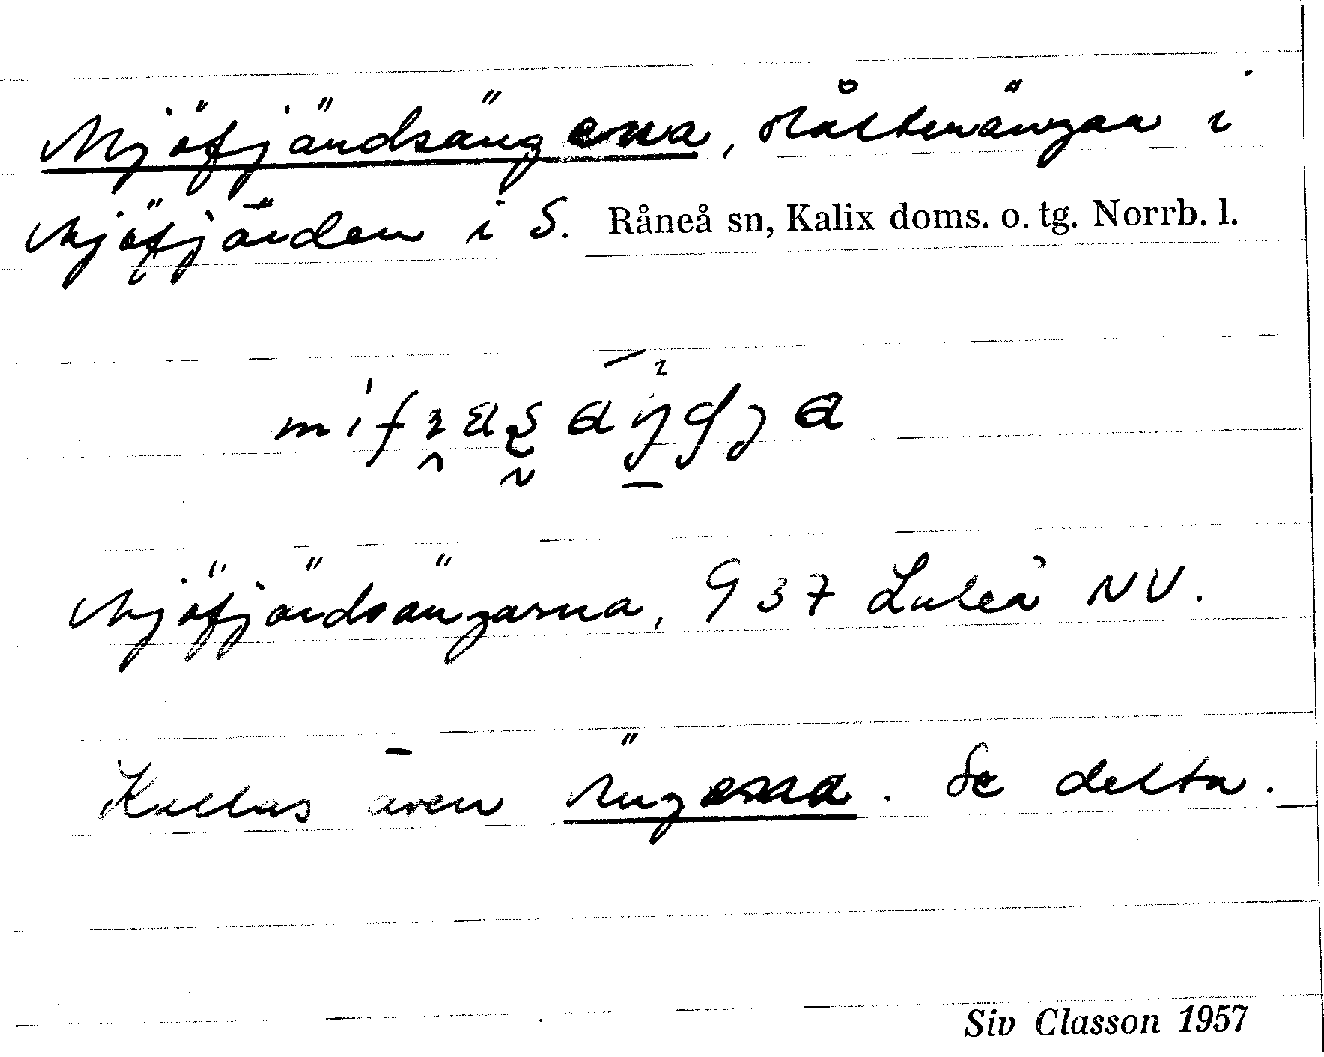 Mjöfjärdsängena, slåtterängar i
Mjöfjärden i S. Råneå sn, Kalix doms. o. tg. Norrb. l.
Mjöfjärdsängarna, G 37 Luleå NV.
Kallas även Ängena. Se detta.
Siv Classon 1957